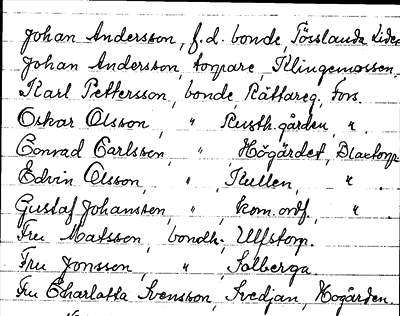 Johan Andersson, f.d. bonde, Tösslanda Lider
Johan Andersson, torpare, Klingemossen.
Karl Pettersson, bonde, Rättareg. Fors.
Oskar Olsson, " Rusth.gården, " .
Conrad Carlsson, " Högärdet, Blaxtorp
Edvin Olsson, " Kullen, " .
Gustaf Johansson, " kom.ordf. " .
Fru Matsson, bondh., Ulfstorp.
Fru Jonsson, " Solberga.
Fru Charlotta Svensson, Svedjan, Hogården.